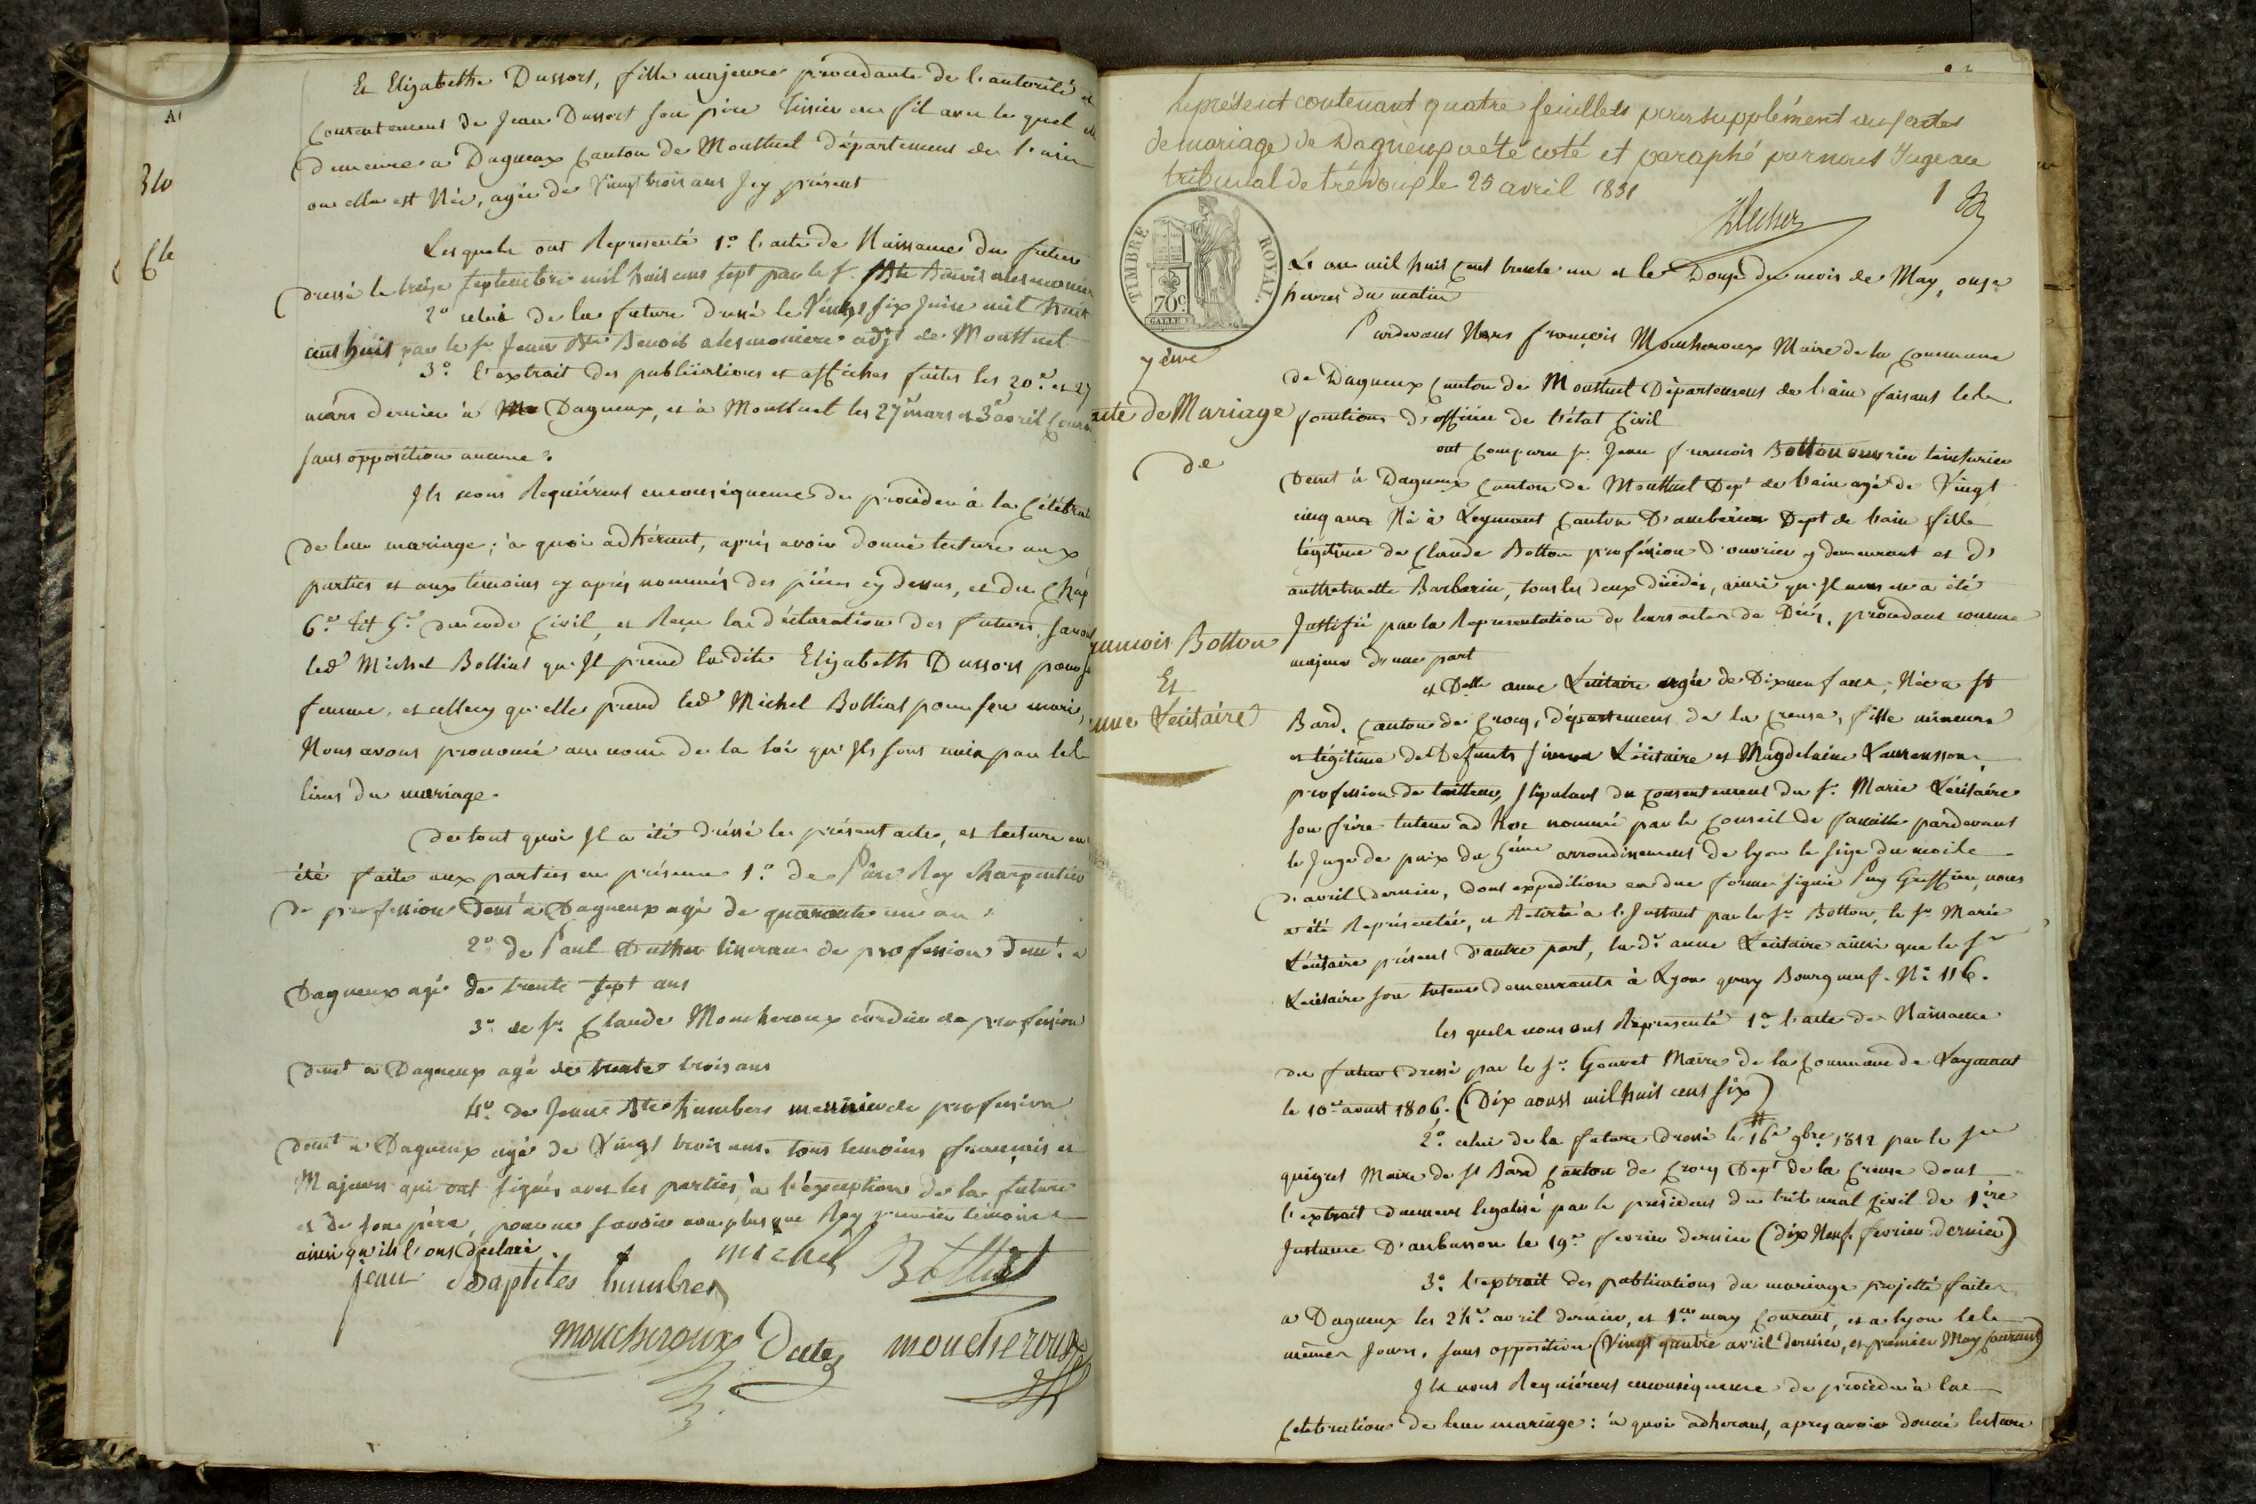 Et Elizabeth Dussort, fille majeure procedante de l'autorité et
Consentement de Jean Dussort son père tissier en fil avec le quel elle
demeure a Dagneux Canton de Montluel département de l'ain
ou elle est Née, agée de Vingt trois ans Icy présent
Lesquels ont Représenté 1.º l'acte de Naissance du futur
dressé le treize septembre mil huit cens sept par le s.r Jean Bte Benoit alesmoniere
2º celui de la future dressé le Vingt six Juin mil huit
cens huit, par le sr Jean Bte Benoit alesmoniere adjt de Montluel
3.º l'extrait des publications et affiches faites les 20.e et 27
mars dernier à Dagneux, et à Montluel les 27 mars et 3e avril Courant
sans opposition aucune.
Ils nous Requiérent en conséquence de procéder à la Célébrat
de leur mariage; à quoi adhérant, après avoir donné lecture aux
parties et aux témoins cy après nommés des pièces cy dessus, et du Chap
6.e tit 5.e du code Civil, et Reçu la déclaration des futurs, savoir
led. Michel Bolliat qu'Il prend ladite Elizabeth Dussort pour sa
femme, et cellecy qu'elle prend led. Michel Bolliat pour son mari
Nous avons prononcé au nom de la loi qu'Ils sont unis par les
liens du mariage.
De tout quoi Il a été dressé le présent acte, et lecture en
été faite aux parties en présence 1.º de Pierre Rey charpentier
de profession demt à Dagneux agé de quarante un an.
2º de Paul Duthu tisseran de profession demt. a
Dagneux agé de trente sept ans
3.º de sr. Claude Moucheroux cordier de profession
demt a Dagneux agé de trente trois ans
4º. de Jean Bte humbert meunier de profession
demt a Dagneux agé de Vingt trois ans. tous temoins français et
Majeurs qui ont signés avec les parties, à l'exception de la future
et de son père, pour ne savoir non plus que Rey premier témoin
ainsi qu'ils l'ont déclaré.
michel Bolliat
jean Baptistes humbert
moucheroux Dute moucheroux
Le présent contenant quatre feuillets pour supplément aux actes
de mariage de Dagneux a été coté et paraphé par nous Juge au
tribunal de trévoux le 25 avril 1831
1
TIMBRE ROYAL
70c
7éme
acte de Mariage
de
françois Botton
Et
anne Lécitaire
L'an mil huit Cent trente un et le Douze du mois de May, onze
heures du matin
Pardevant Nous françois Moucheroux Maire de la Commune
de Dagneux Canton de Montluel Département de l'ain faisant les
fonctions d'officier de l'état Civil
ont comparu sr. Jean françois Botton ouvrier teinturier
demt à Dagneux Canton de Montluel Dept de l'ain agé de Vingt
cinq ans Né à Leyment Canton D'amberieu Dept de l'ain fils
légitime de Claude Botton profession d'ouvrier y demeurant et d'
anthelmette Barberin, tous les deux décédés, ainsi qu'Il nous en a été
Justifié par la Représentation de leurs actes de Décés, procédant comme
majeur d'une part
et Delle anne Lécitaire agée de Dixneuf ans, Née a St
Bard, Canton de Crocq, département de la Creuse, fille mineure
et légitime de Defunts Simon Lécitaire et Magdelaine Laurensson,
profession de tailleur, stipulant du consentement du sr. Marie Lécitaire
son frère tuteur ad hoc nommé par le Conseil de famille pardevant
le Juge de paix du 5éme arrondissement de lyon le size du mois de
d'avril dernier, dont expedition en due forme signée Puy Griffier, nous
a été Représentée, et Retirée à l'Instant par le sr. Botton, le sr. Marie
Lécitaire présent d'autre part, la de. anne Lécitaire ainsi que le sr
Lécitaire son tuteur demeurants à Lyon quay Bourgneuf. Nº 116.
les quels nous ont Représenté 1.º l'acte de Naissance
du futur dressé par le sr. Gouvet Maire de la Commune de Layment
le 10.e aoust 1806. (Dix aoust mil huit cens six)
2.º celui de la future dressé le 16e 9bre 1812 par le sr
quigret Maire de St Bard Canton de Crocq Dept de la Creuse dont
l'extrait duement legalisé par le président du tribunal Civil de 1ére
Instance D'aubusson le 19.e fevrier dernier (dix Neuf fevrier dernier)
3.º l'extrait des publications du mariage projetté faites
a Dagneux les 24.e avril dernier, et 1.er may Courant, et a lyon les
mêmes Jours, sans opposition (Vingt quatre avril dernier, et premier May Courant)
Ils nous Requiérent en conséquence de procéder à la
Célébration de leur mariage: à quoi adhérant, après avoir donné lecture